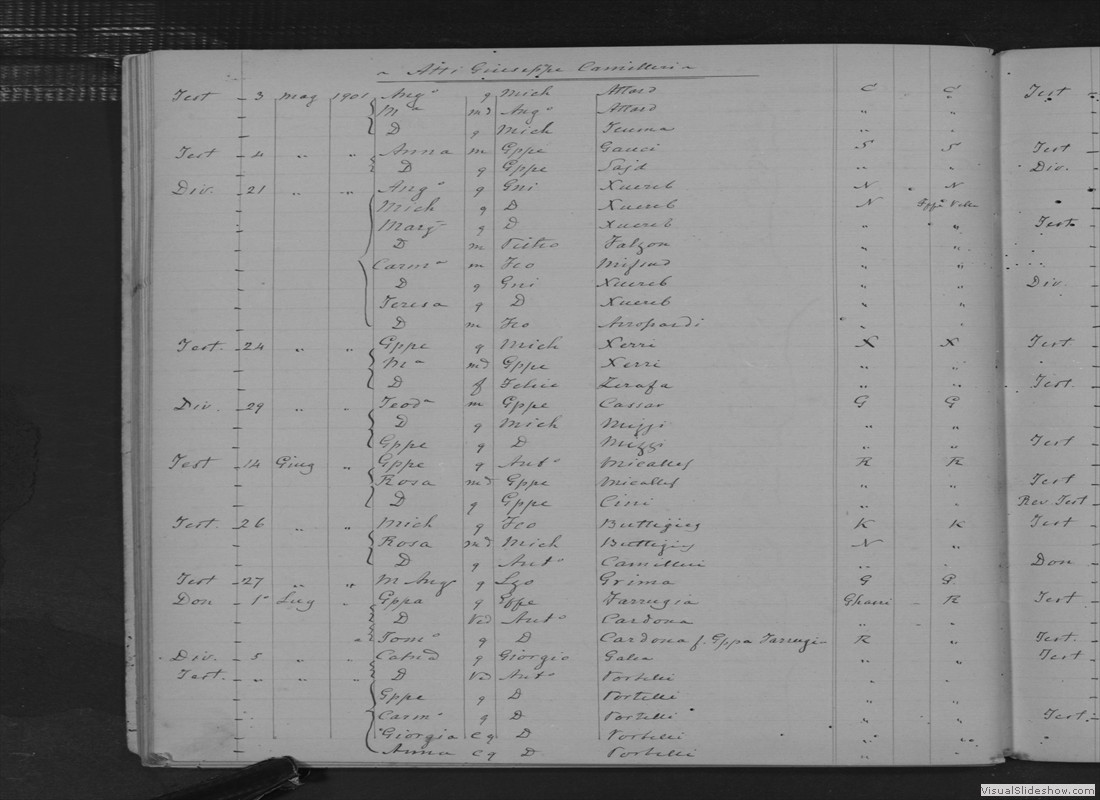 Atti Giuseppe Camilleri
Test 3 mag 1901 Angº q Mich Attard C C Test
Mª md Angº Attard " "
D q Mich Teuma " "
Test 4 " " Anna m Gppe Gauci S S Test
D q Gppe Sajd " " Div.
Div. 21 " " Angº q Gni Xuereb N N
Mich q D Xuereb N
q D Xuereb " " Test
D m Pietro Falzon " "
Carmª m Fco Mifsud " "
D q Gni Xuereb " " Div
Teresa q D Xuereb " "
D m Fco
Test. 24 " " Gppe q Mich Xerri X X Test
Mª md Gppe Xerri " "
D f Felice Zerafa " " Test.
Div. 29 " " Teodª m Gppe Cassar G G
D q Mich Mizzi " "
Gppe q D Mizzi " " Test
Test 14 Giug " Gppe q Antº Micallef R R
Rosa md Gppe Micallef " " Test
D q Gppe Cini " " Rev Test
Test. 26 " " Mich q Fco Buttigieg K K Test
Rosa md Mich Buttigieg N "
D q Antº Camilleri " Don
Test 27 " " M Ang q Lzo Grima G G
Don 1º Lug " Gppa q Gppe Farrugia R Test
D Ved Antº Cardona " "
Tomº q D Cardona f. Gppa Farrugia R " Test.
Div. 5 " " q Giorgio Galea " " Test
Test. " " " D Ved Antº Portelli " "
Gppe q D Portelli " "
Carmº q D Portelli " " Test.
Giorgia e q D Portelli " "
Anna e q D Portelli " "
VisualSlideshow.com